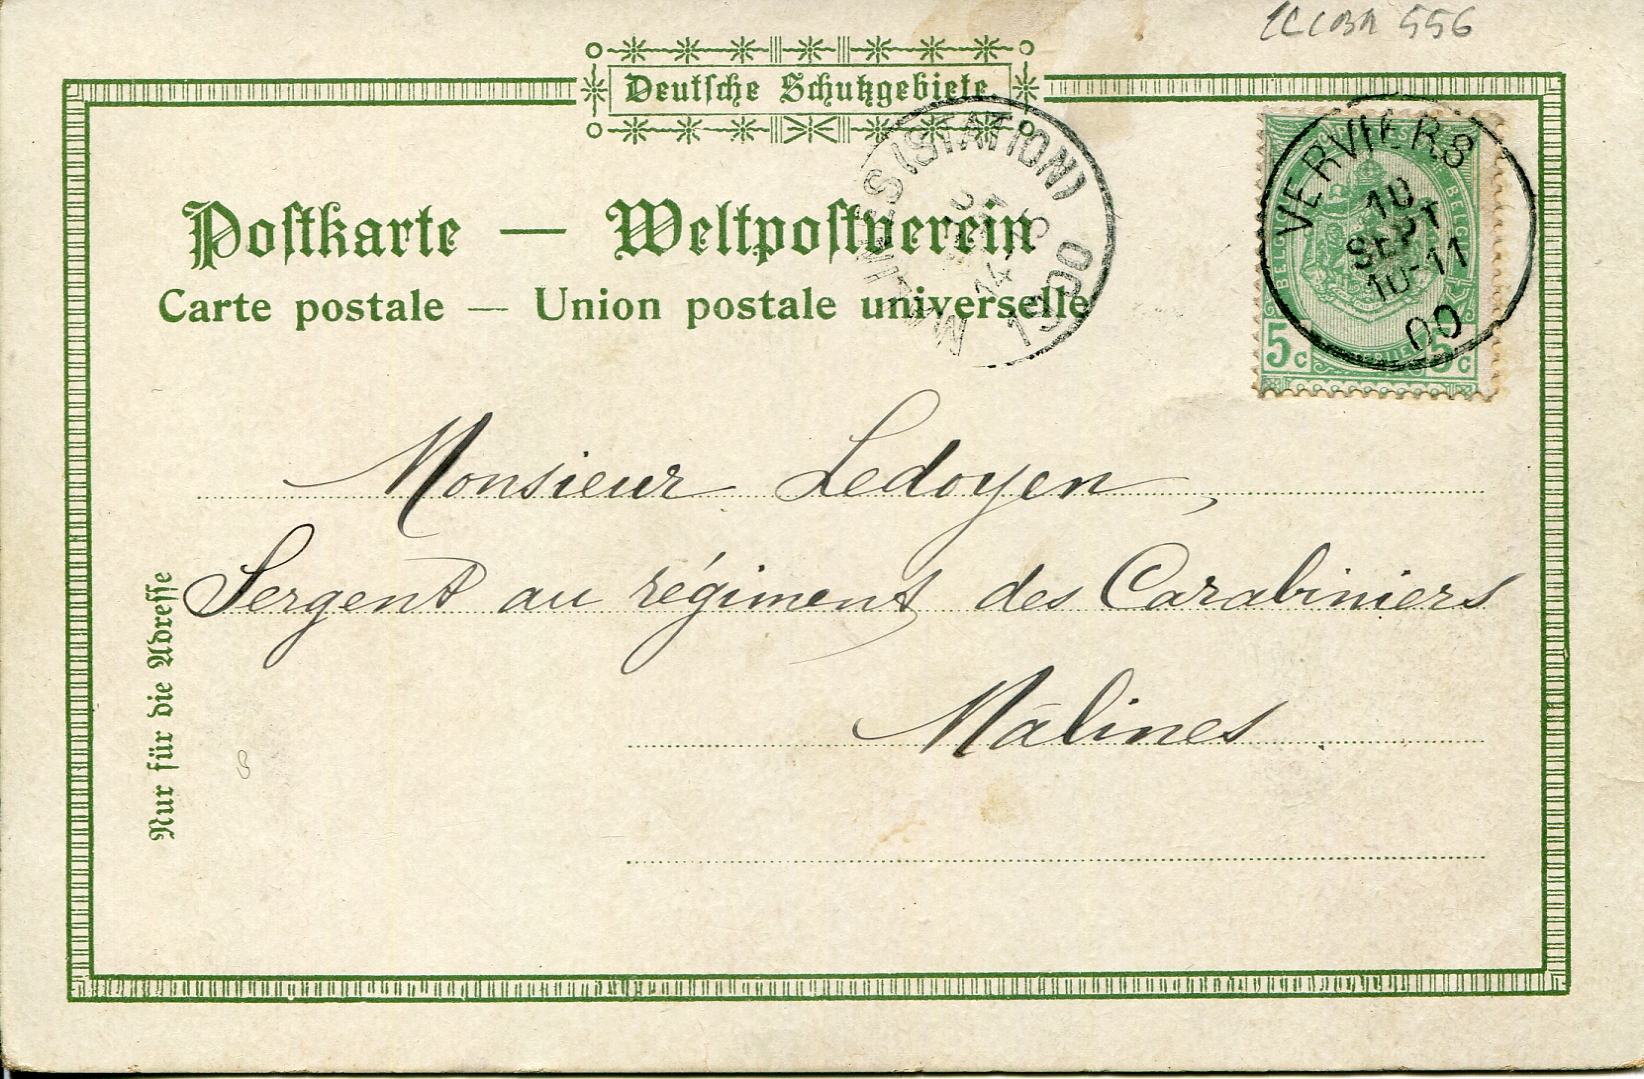 556
Deutsche Schutzgebiete.
Postkarte — Weltpostverein
Carte postale — Union postale universelle
MALINES (STATION)
14
1900
VERVIERS
10
SEPT
10-11
00
5c 5c
Monsieur Ledoyen,
Sergent au régiment des Carabiniers
Malines.
Nur für die Adresse